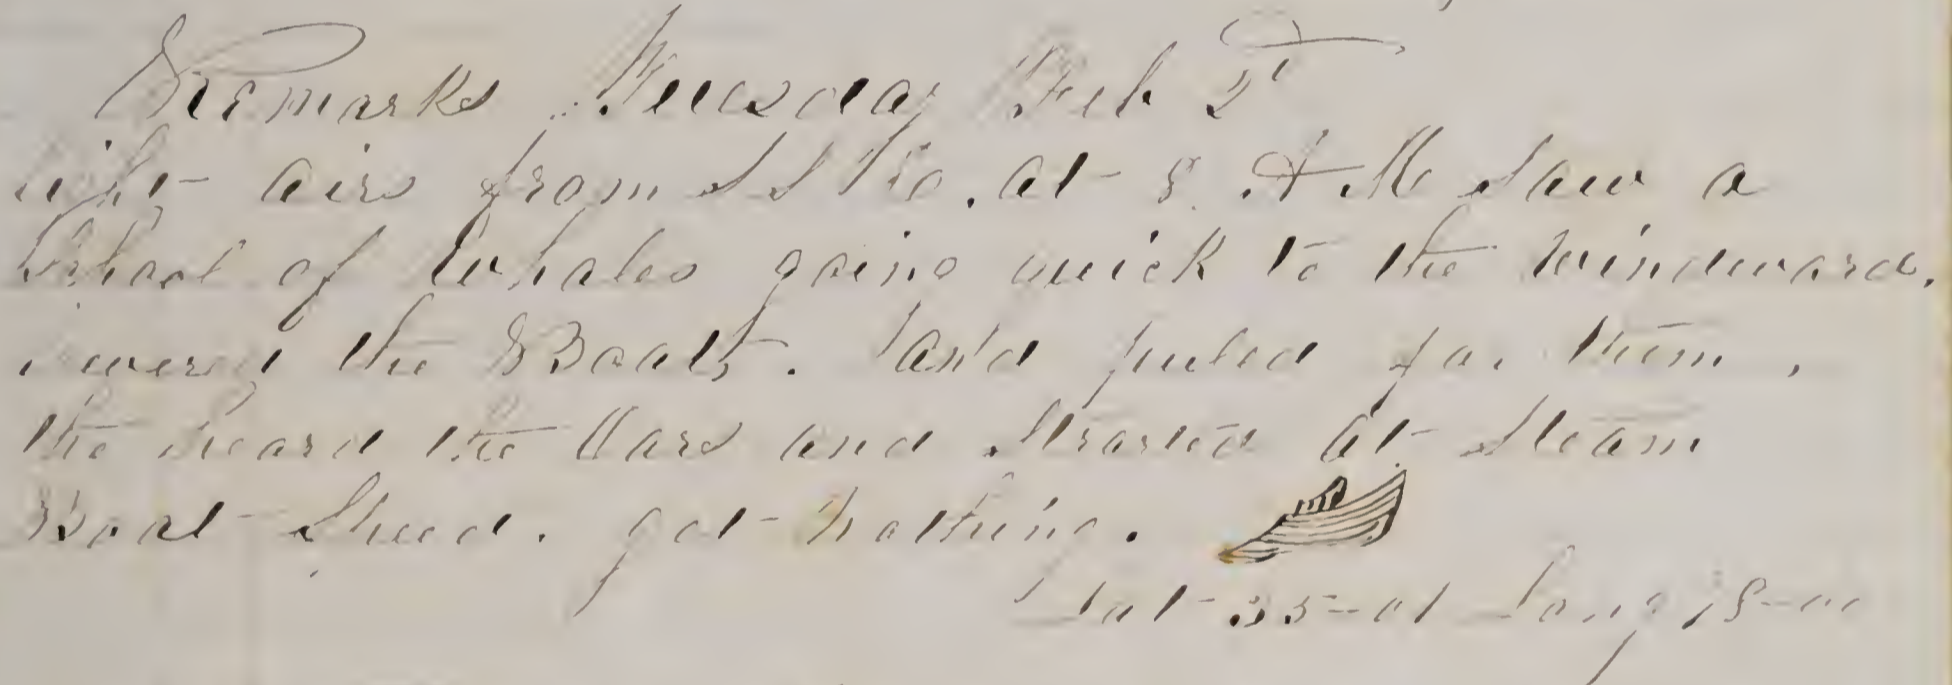 Remarks Tuesday Feb 2d
light airs from S S W. at 8 A M Saw a
School of Whales going quick to the windward.
lowered the Boats. and puled for them,
the heard the Oars and Strarted at Steam
Boat Speed. got nothing.
Lat 35-01 Long 18-00